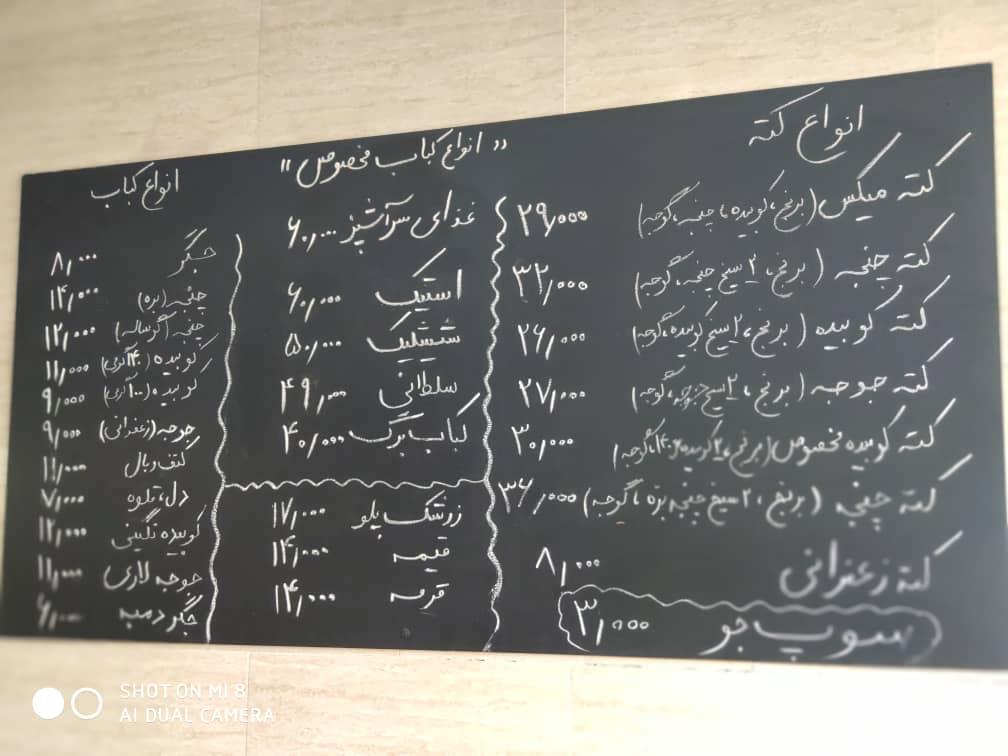 انواع کته
کته میکس (برنج، کوبیده، چنجه، گوجه) ۲۹,۰۰۰
کته چنجه (برنج، ۲ سیخ چنجه، گوجه) ۳۲,۰۰۰
کته کوبیده (برنج، ۲ سیخ کوبیده، گوجه) ۲۶,۰۰۰
کته جوجه (برنج، ۲ سیخ جوجه، گوجه) ۲۷,۰۰۰
کته کوبیده مخصوص (برنج، ۲ کوبیده گوجه) ۳۰,۰۰۰
کته چنجه (برنج، ۲ سیخ چنجه بره، گوجه) ۳۶,۰۰۰
کته زعفرانی ۸,۰۰۰
سوپ جو ۳,۰۰۰
"انواع کباب مخصوص"
غذای سرآشپز ۶۰,۰۰۰
استیک ۶۰,۰۰۰
شیشلیک ۵۰,۰۰۰
سلطانی ۴۹,۰۰۰
کباب برگ ۴۰,۰۰۰
زرشک پلو ۱۷,۰۰۰
قیمه ۱۴,۰۰۰
قرمه ۱۴,۰۰۰
انواع کباب
جگر ۸,۰۰۰
چنجه (بره) ۱۴,۰۰۰
چنجه (گوساله) ۱۲,۰۰۰
کوبیده (۱۴۰گرمی) ۱۱,۰۰۰
کوبیده (۱۰۰گرمی) ۹,۰۰۰
جوجه (زعفرانی) ۹,۰۰۰
کتف و بال ۱۱,۰۰۰
دل، قلوه ۷,۰۰۰
کوبیده نگینی ۱۲,۰۰۰
جوجه لاری ۱۱,۰۰۰
جگر دمبه ۶,۰۰۰
SHOT ON MI 8
AI DUAL CAMERA